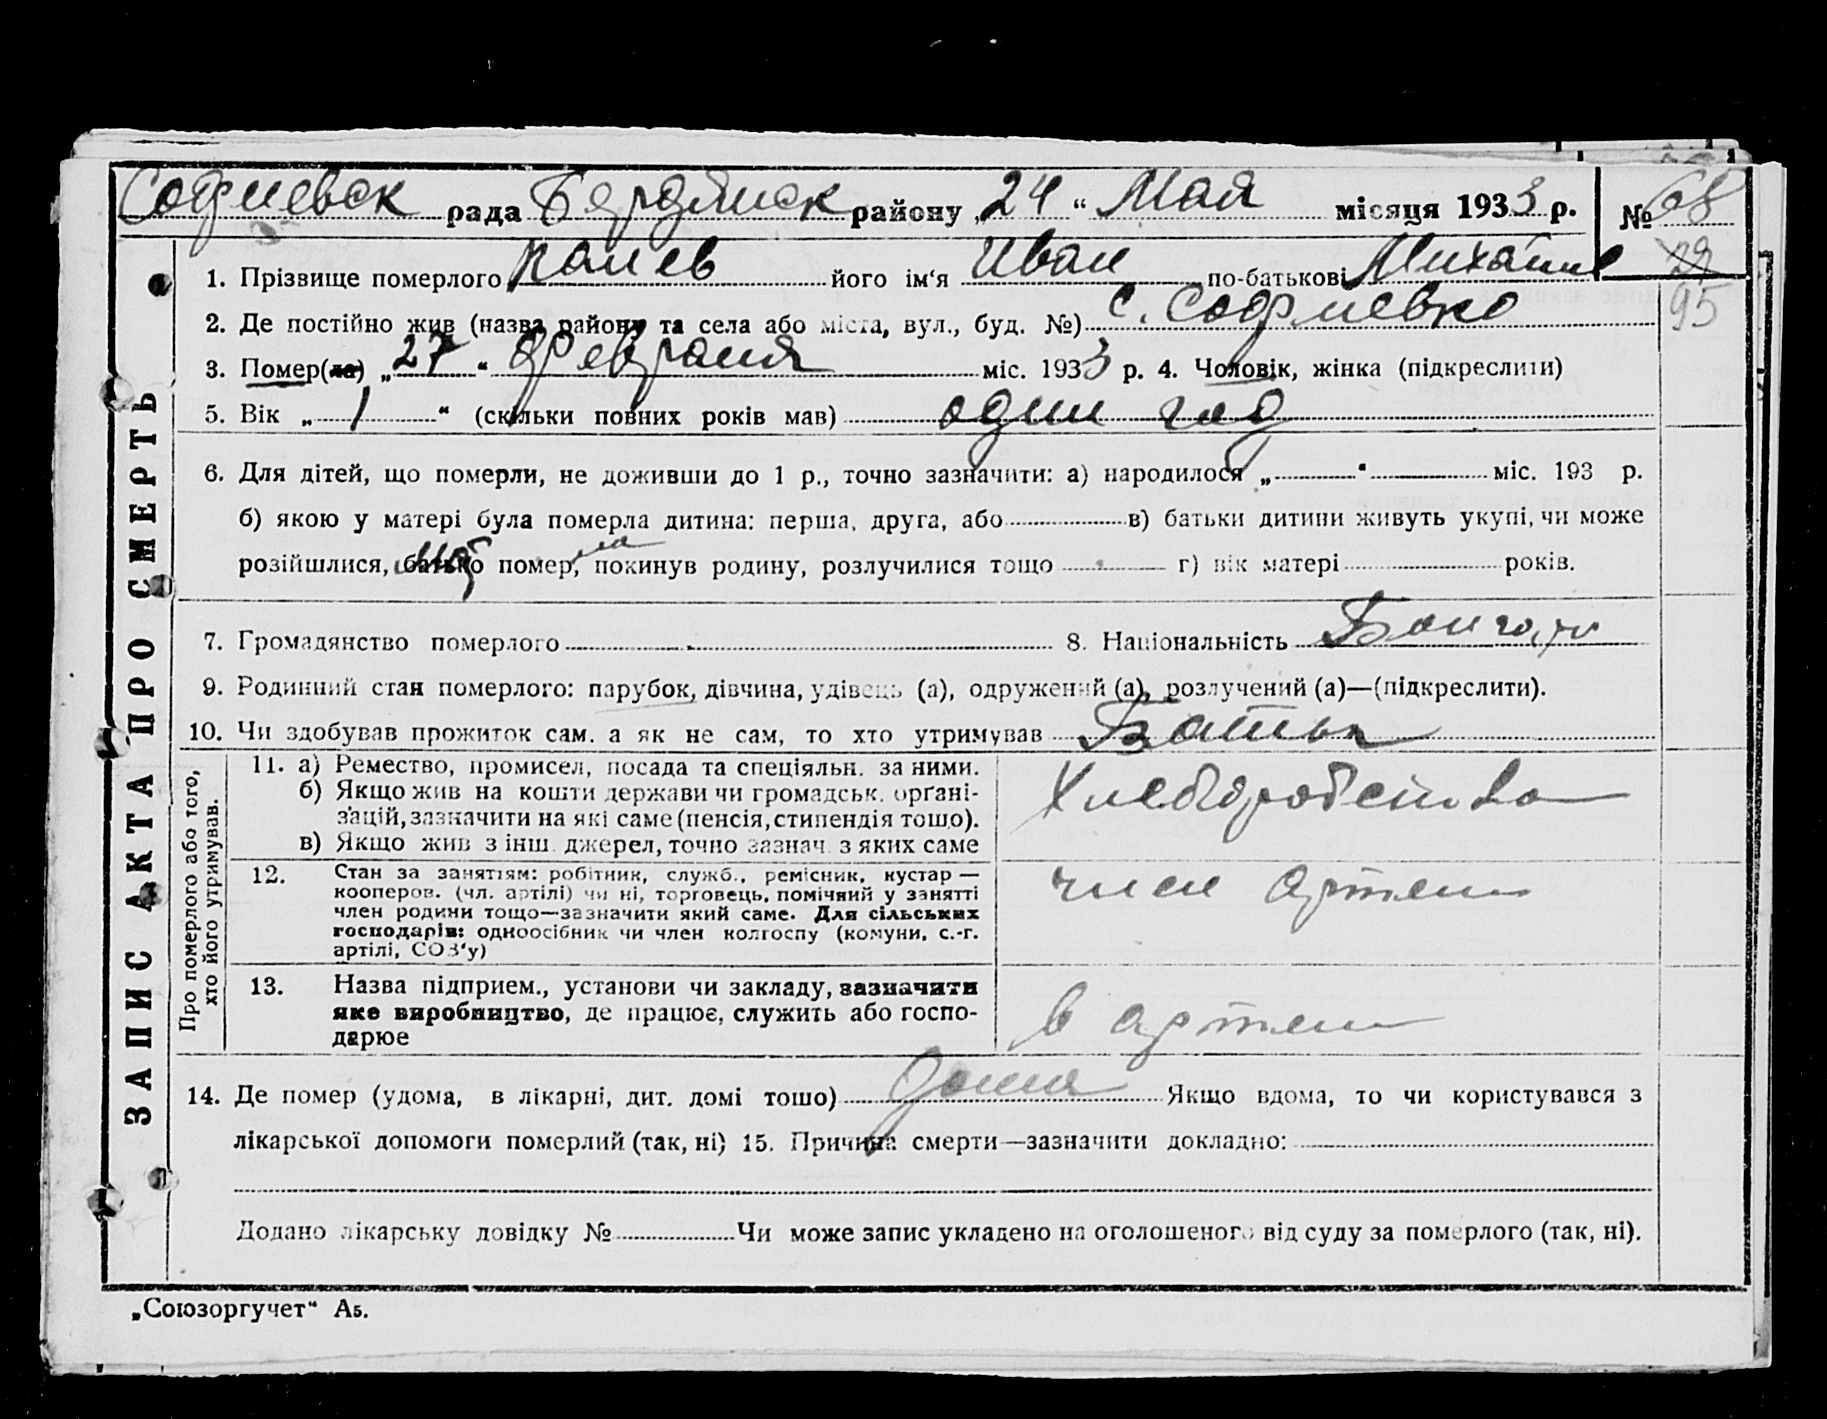 Софиевск рада Бердянск району „24“ Мая місяця 1933 р. № 68
1. Прізвище померлого його ім'я Иван по-батькові 29
2. Де постійно жив (назва району та села або міста, вул., буд. №) с. Софиевка 95
3. Помер(ла) „27“ Февраля міс. 1933 р. 4. Чоловік, жінка (підкреслити)
5. Вік „1“ (скільки повних років мав) один год
6. Для дітей, що померли, не доживши до 1 р., точно зазначити: а) народилося „ “ міс. 193 р.
б) якою у матері була померла дитина: перша, друга, або в) батьки дитини живуть укупі, чи може
розійшлися, батько помер, ла покинув родину, розлучилися тощо г) вік матері років.
7. Громадянство померлого 8. Національність
9. Родинний стан померлого: парубок, дівчина, удівець (а), одружений (а), розлучений (а)—(підкреслити).
10. Чи здобував прожиток сам. а як не сам, то хто утримував
ЗАПИС АКТА ПРО СМЕРТЬ
Про померлого або того,
хто його утримував.
11. а) Ремество, промисел, посада та спеціяльн. за ними.
б) Якщо жив на кошти держави чи громадськ. орґані-
зацій, зазначити на які саме (пенсія, стипендія тощо).
в) Якщо жив з інш. джерел, точно зазнач. з яких саме
12. Стан за заняттям: робітник, служб., ремісник, кустар —
кооперов. (чл. артілі) чи ні, торговець, помічний у занятті
член родини тощо—зазначити який саме. Для сільських
господарів: одноосібник чи член колгоспу (комуни, с.-г.
артілі, СОЗ'у)
член артели
13. Назва підприєм., установи чи закладу, зазначити
яке виробництво, де працює, служить або госпо-
дарює
в артели
14. Де помер (удома, в лікарні, дит. домі тощо) дома Якщо вдома, то чи користувався з
лікарської допомоги померлий (так, ні) 15. Причина смерти—зазначити докладно:
Додано лікарську довідку № Чи може запис укладено на оголошеного від суду за померлого (так, ні).
„Союзоргучет“ А5.